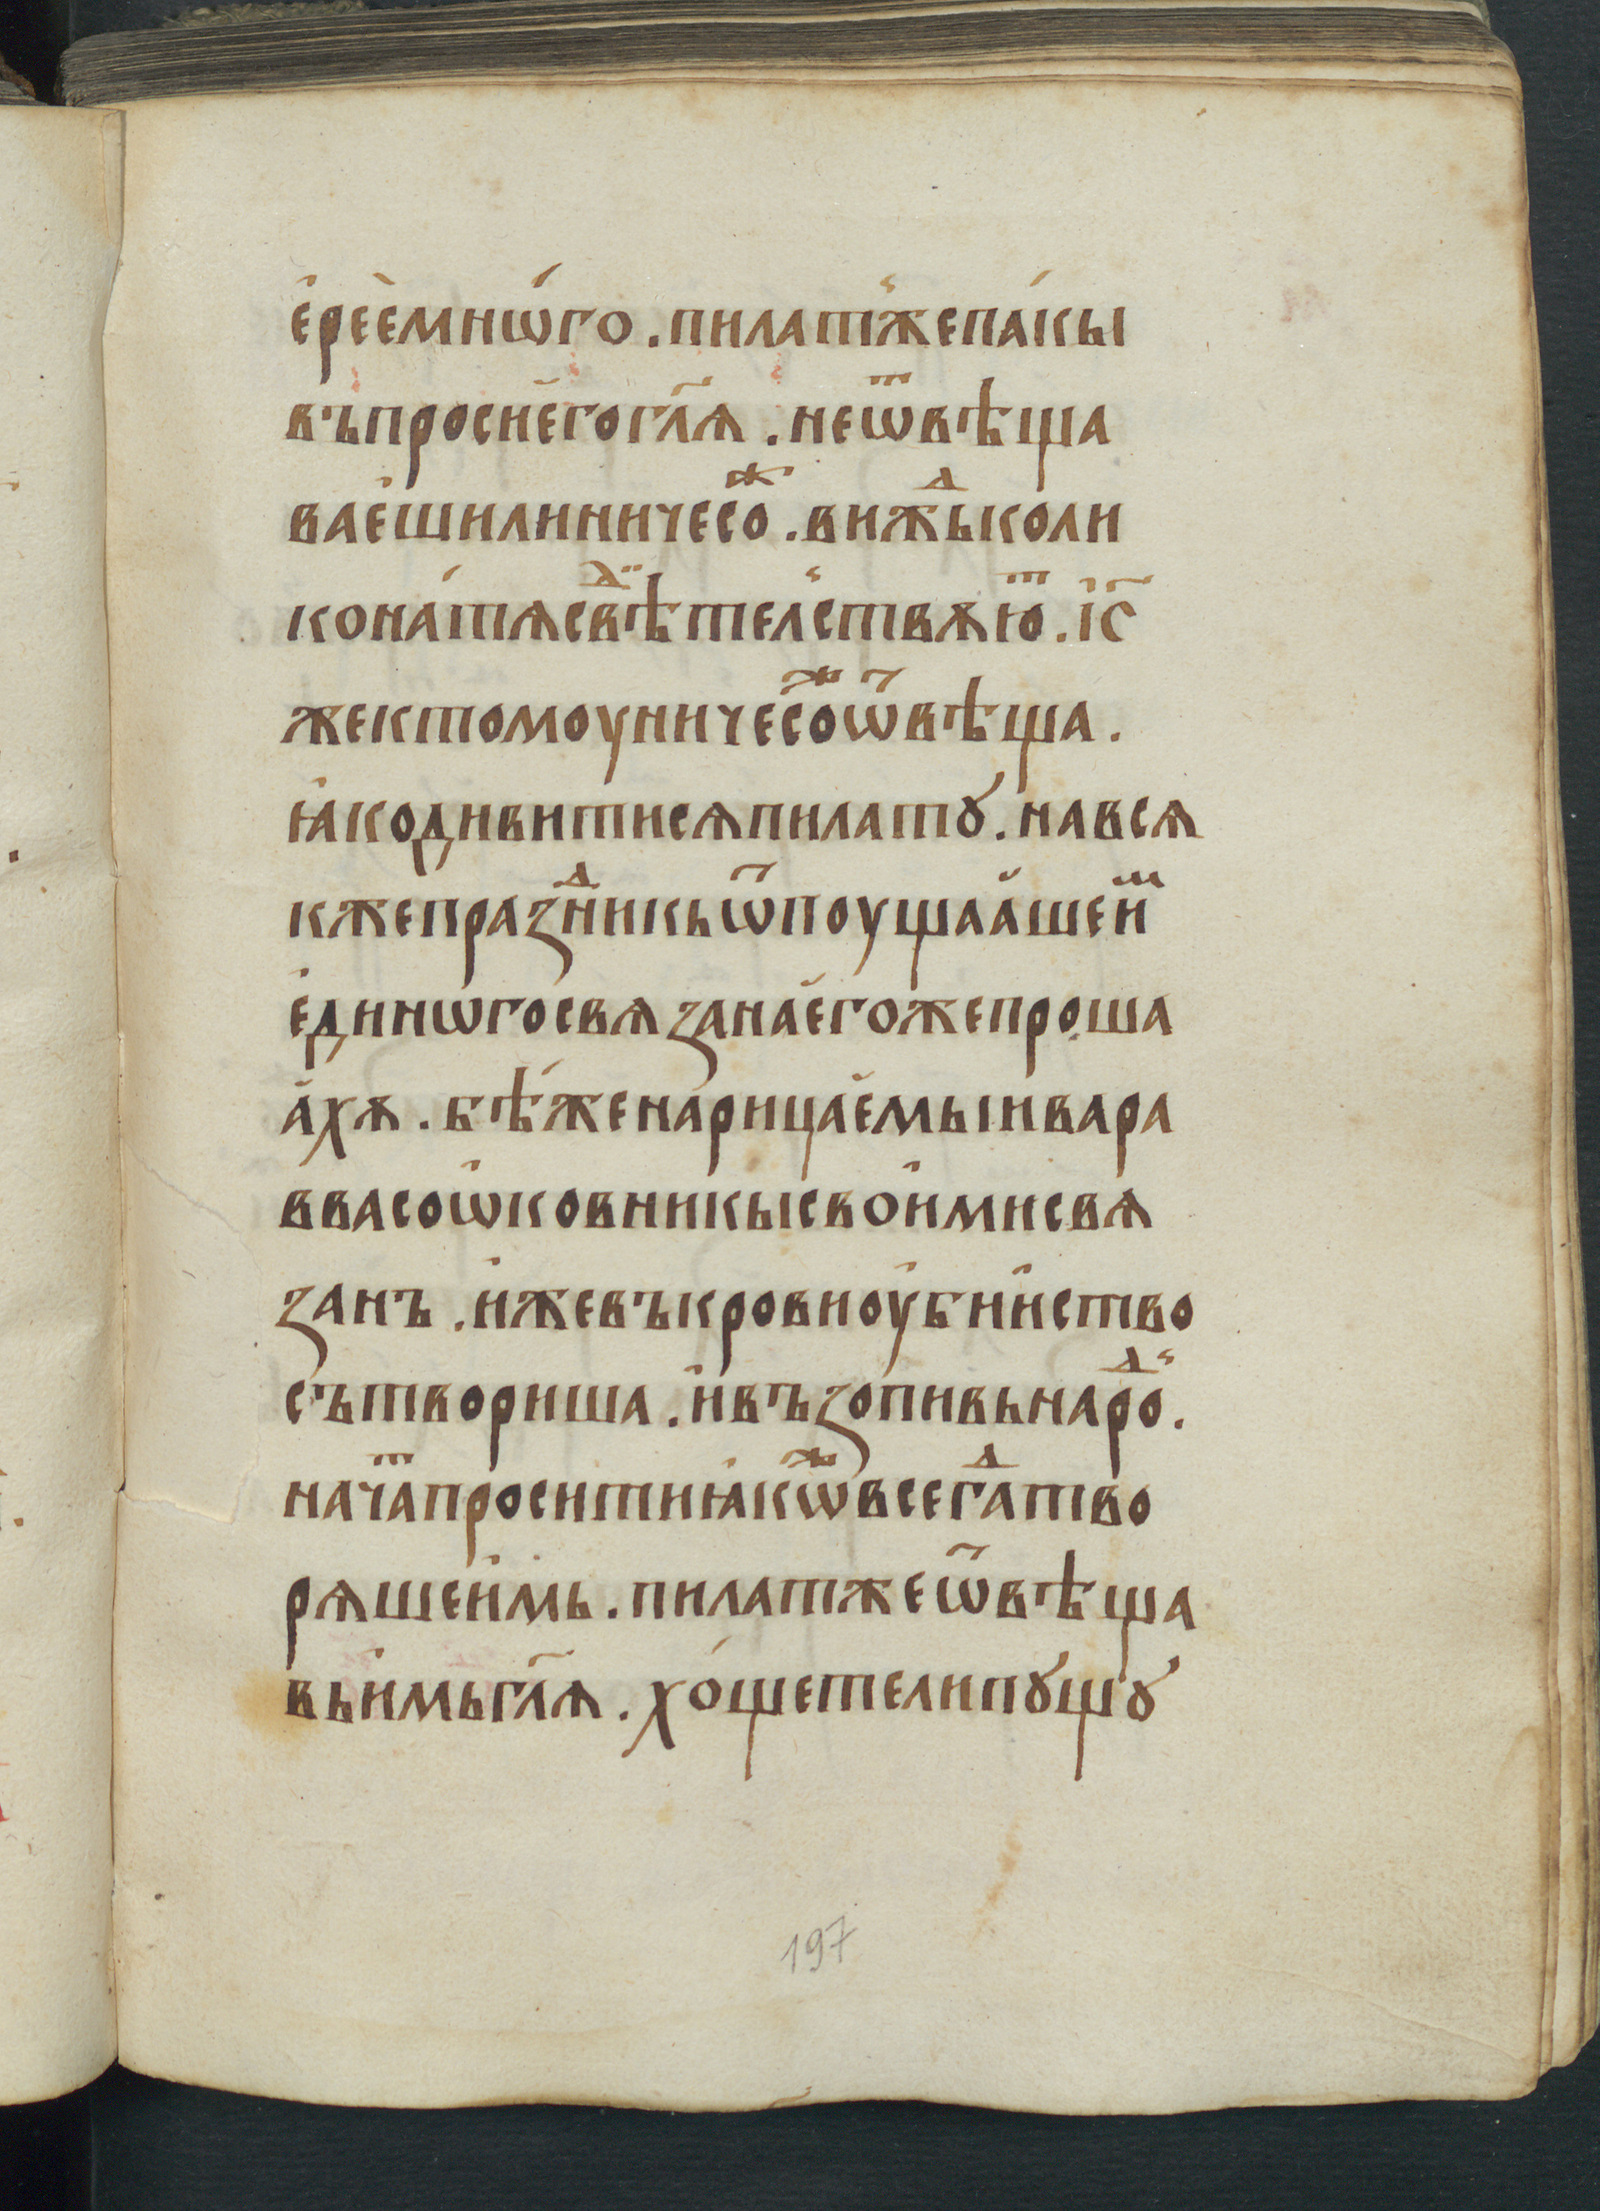 е҆реѐмнѡ́го . пилатⷤепа́кы
въпросиѐгогл҃ѧ . неѿвѣща
ваѐшилиничесоⷤ . вижⷣьколи
кона́тѧсвⷣѣтелⷭствѫюⷮ . і҆с҃
жектомоуничесоⷤѿвѣща .
ꙗ҆кодивитисѧпилатꙋ . навсѧ
кжепразⷣникьѿпоущаа҆шеи҆ⷨ
е҆динѡгосвѧзанае҆гожепроша
а҆хѫ . бѣ́женарицае҆мыивара
ввасоѡ҆ковникысвои҆мисвѧ
занъ . и҆жевъкровиоу҆бии҆ство
сътвориша . и҆възопивьнароⷣ .
начаⷮпроситиꙗ҆кѡⷤвсегⷣатво
рѧшеи҆мь . пилатжеѿвѣща
вьи҆мьгл҃ѧ . хо́щетелипꙋщꙋ
197